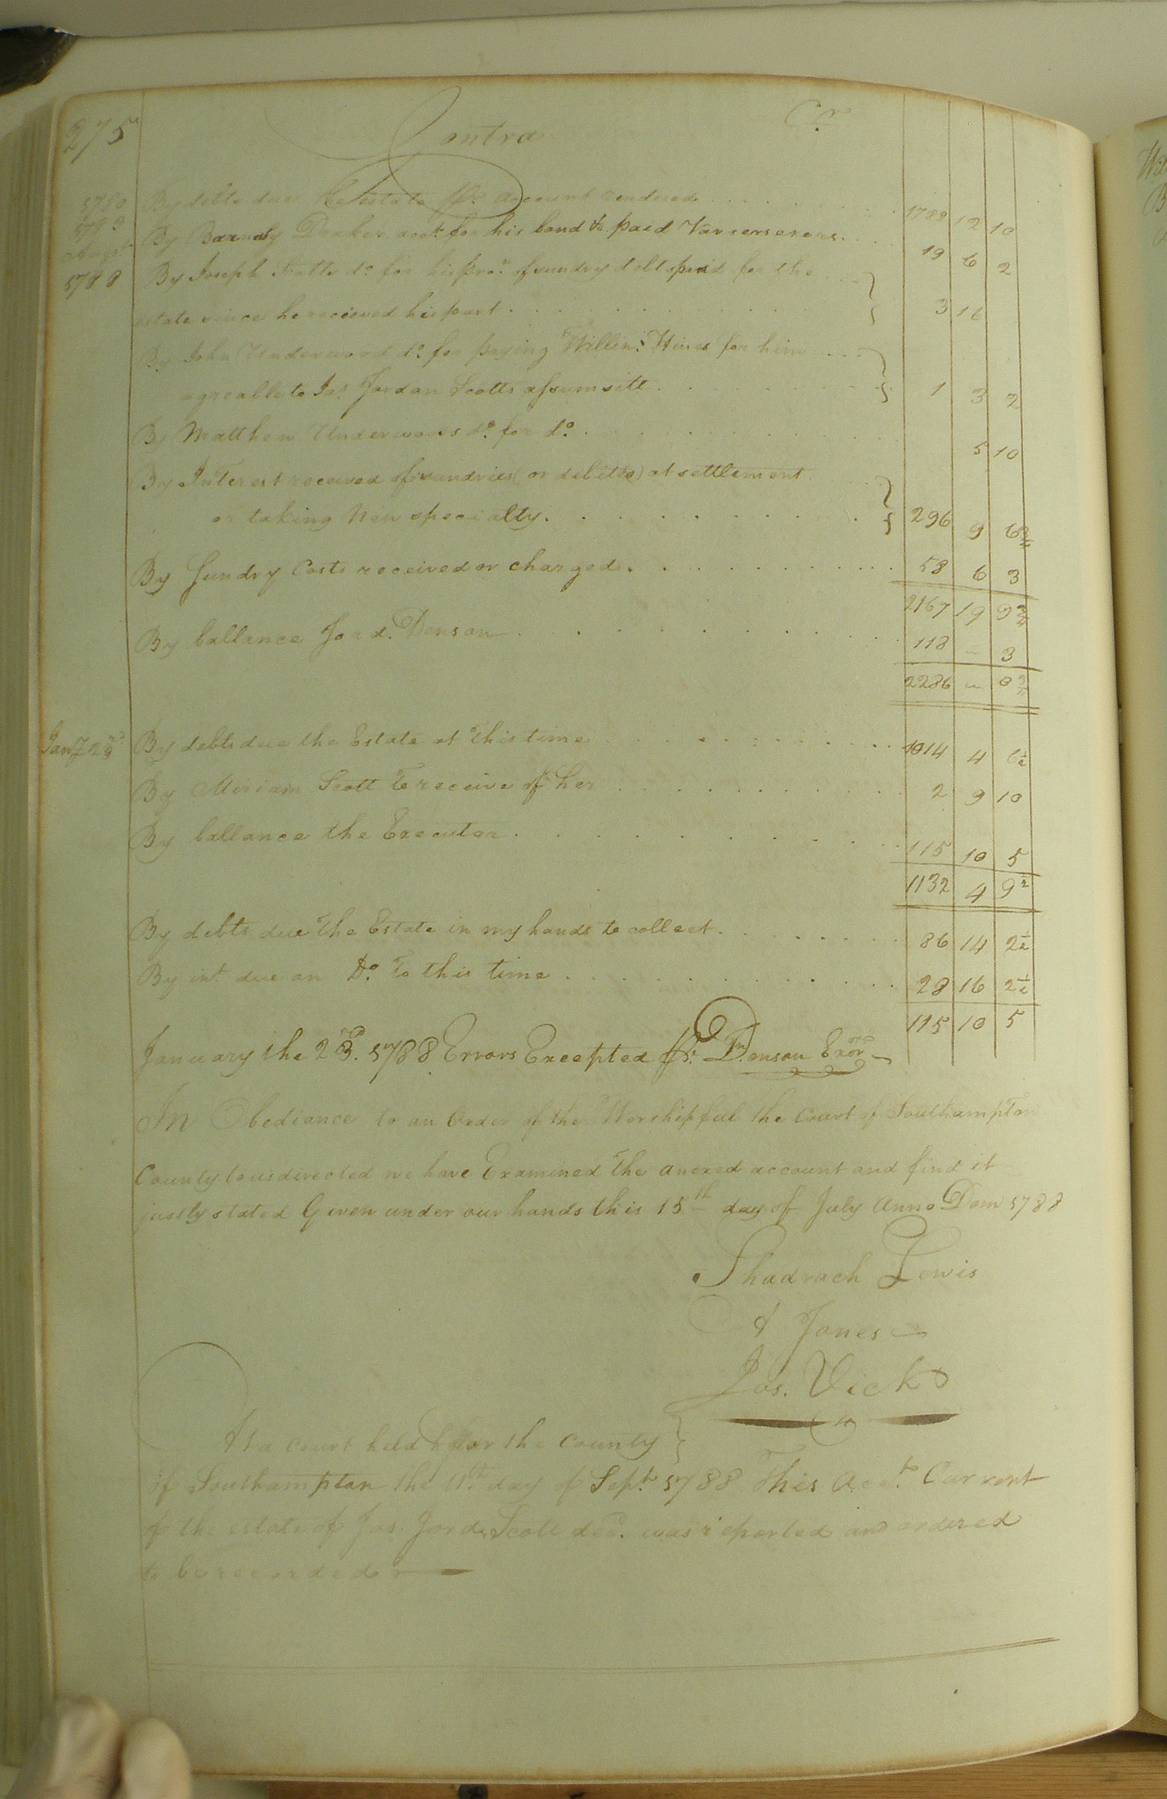 275
Contra Cr
By debts due the Estate pr. account rendered 1789 12 10
By Barnaby Draker acct. for his bond & paid 19 6 2
1788 By Joseph d.o for his pro.n of sundry debts paid for the
estate since he recieved his part 3 16
By John Underwood d.o for paying Willm. Hines for him
agreable to Jas. Jordan Scotts assumsitt 1 3 2
By Matthew Underwoods d.o for d.o 5 10
By Interest received of sundries (or debited) at settlement
or taking New specialty. 296 9 6¾
By Sundry Costs received or charged. 58 6 3
2167 19 9¾
By ballance Jord. Denson 118 – 3
2286 – 0¾
Jany 23d By debts due the Estate at this time 1014 4 6½
By Miriam Scott To receive of her 2 9 10
By ballance the Executor 115 10 5
1132 4 9½
By debts due the Estate in my hands to collect 86 14 2½
By int. due on D.o to this time 28 16 2½
115 10 5
January the 23d. 1788 Errors Excepted Pr. Jn. Denson Exor
In Obediance to an Order of the Worshipful the Court of Southampton
County to us directed we have Examined the anexed account and find it
justly stated Given under our hands this 15th day of July Anno Dom 1788
Shadrach Lewis
A Jones
Jos. Vick
At a Court held for the County
of Southampton the 11th day of Sept. 1788 This Acct. Current
of the estate of Jas. Jord. Scott decd. was reported and ordered
to be recorded